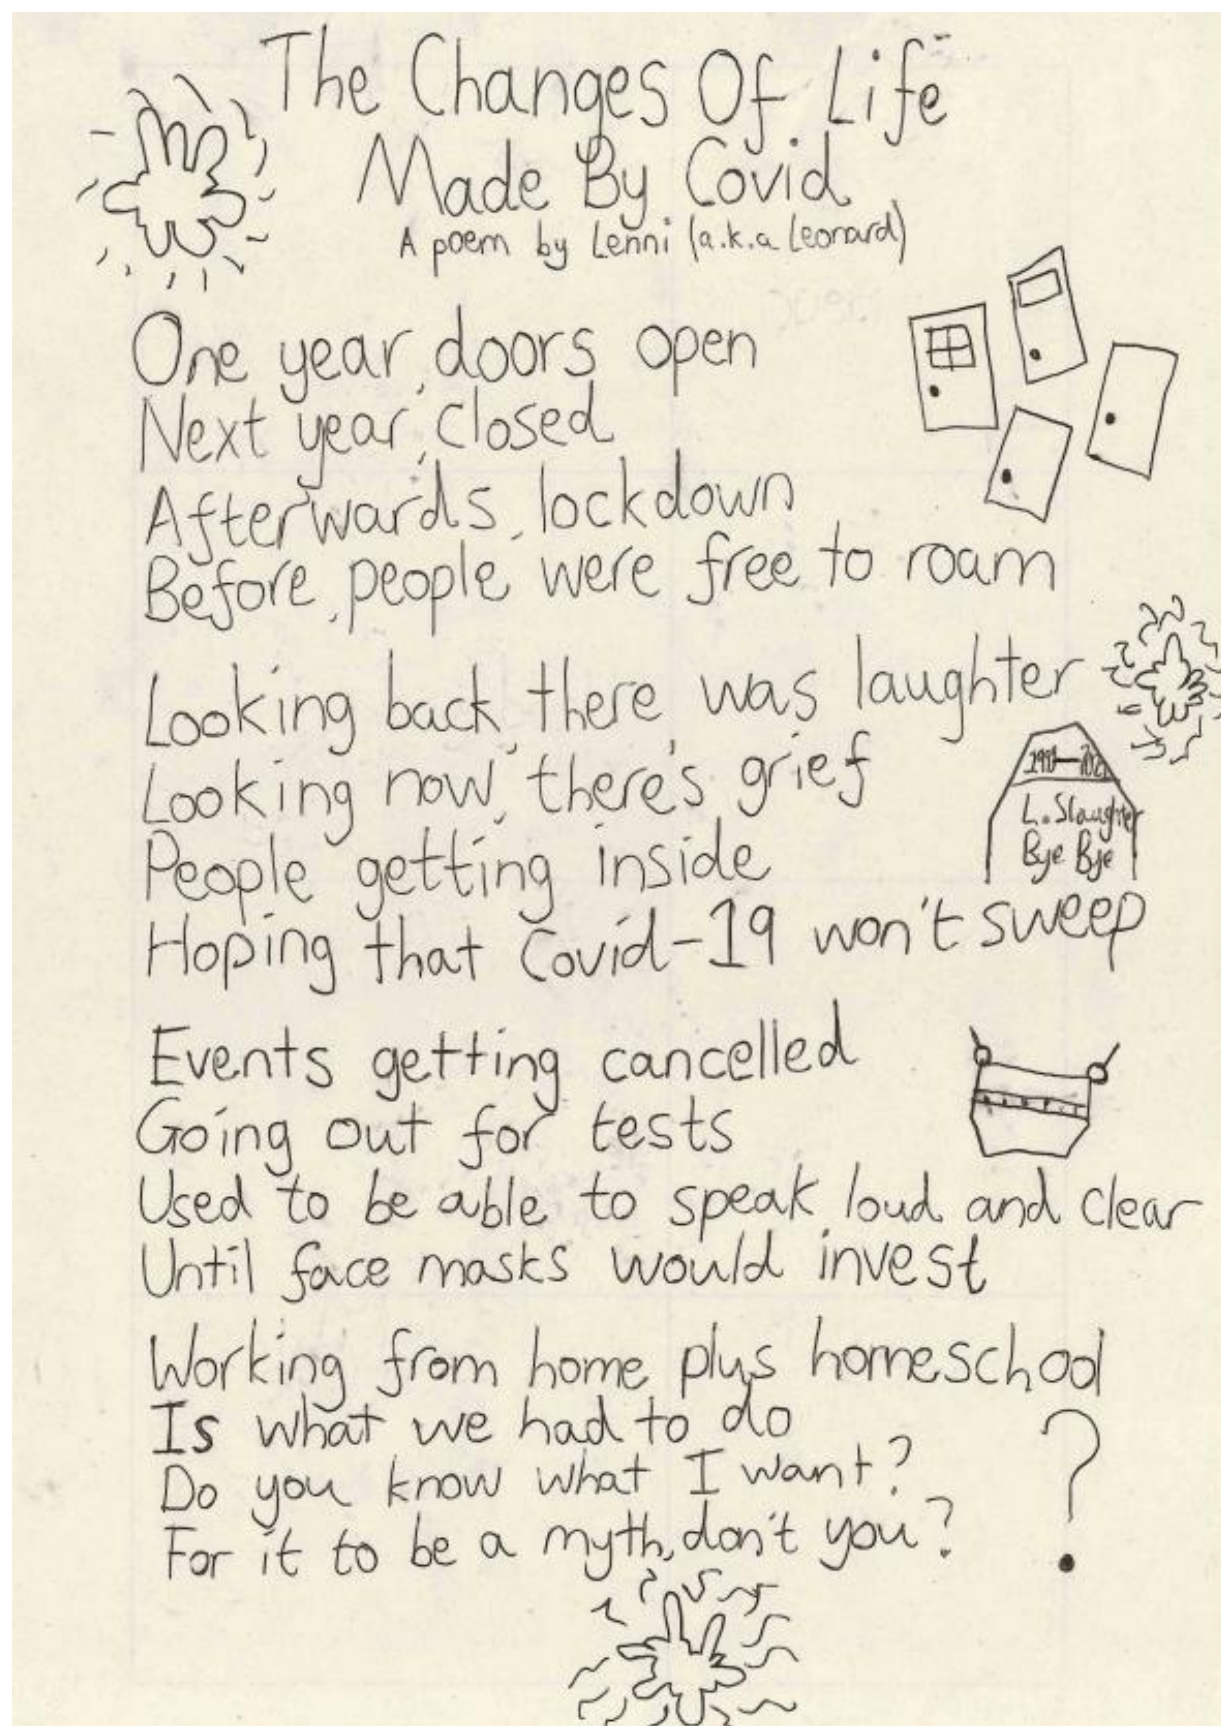 The Changes Of Life
Made By Covid
A poem by Lenni (a.k.a Leonard)
One year, doors open
Next year, closed
Afterwards, lockdown
Before, people were free to roam
Looking back, there was laughter
Looking now, there's grief
People getting inside
Hoping that Covid-19 won't sweep
L. Slaughter
Bye Bye
Events getting cancelled
Going out for tests
Used to be able to speak loud and clear
Until face masks would invest
Working from home plus homeschool
Is what we had to do
Do you know what I want?
For it to be a myth, don't you?
?